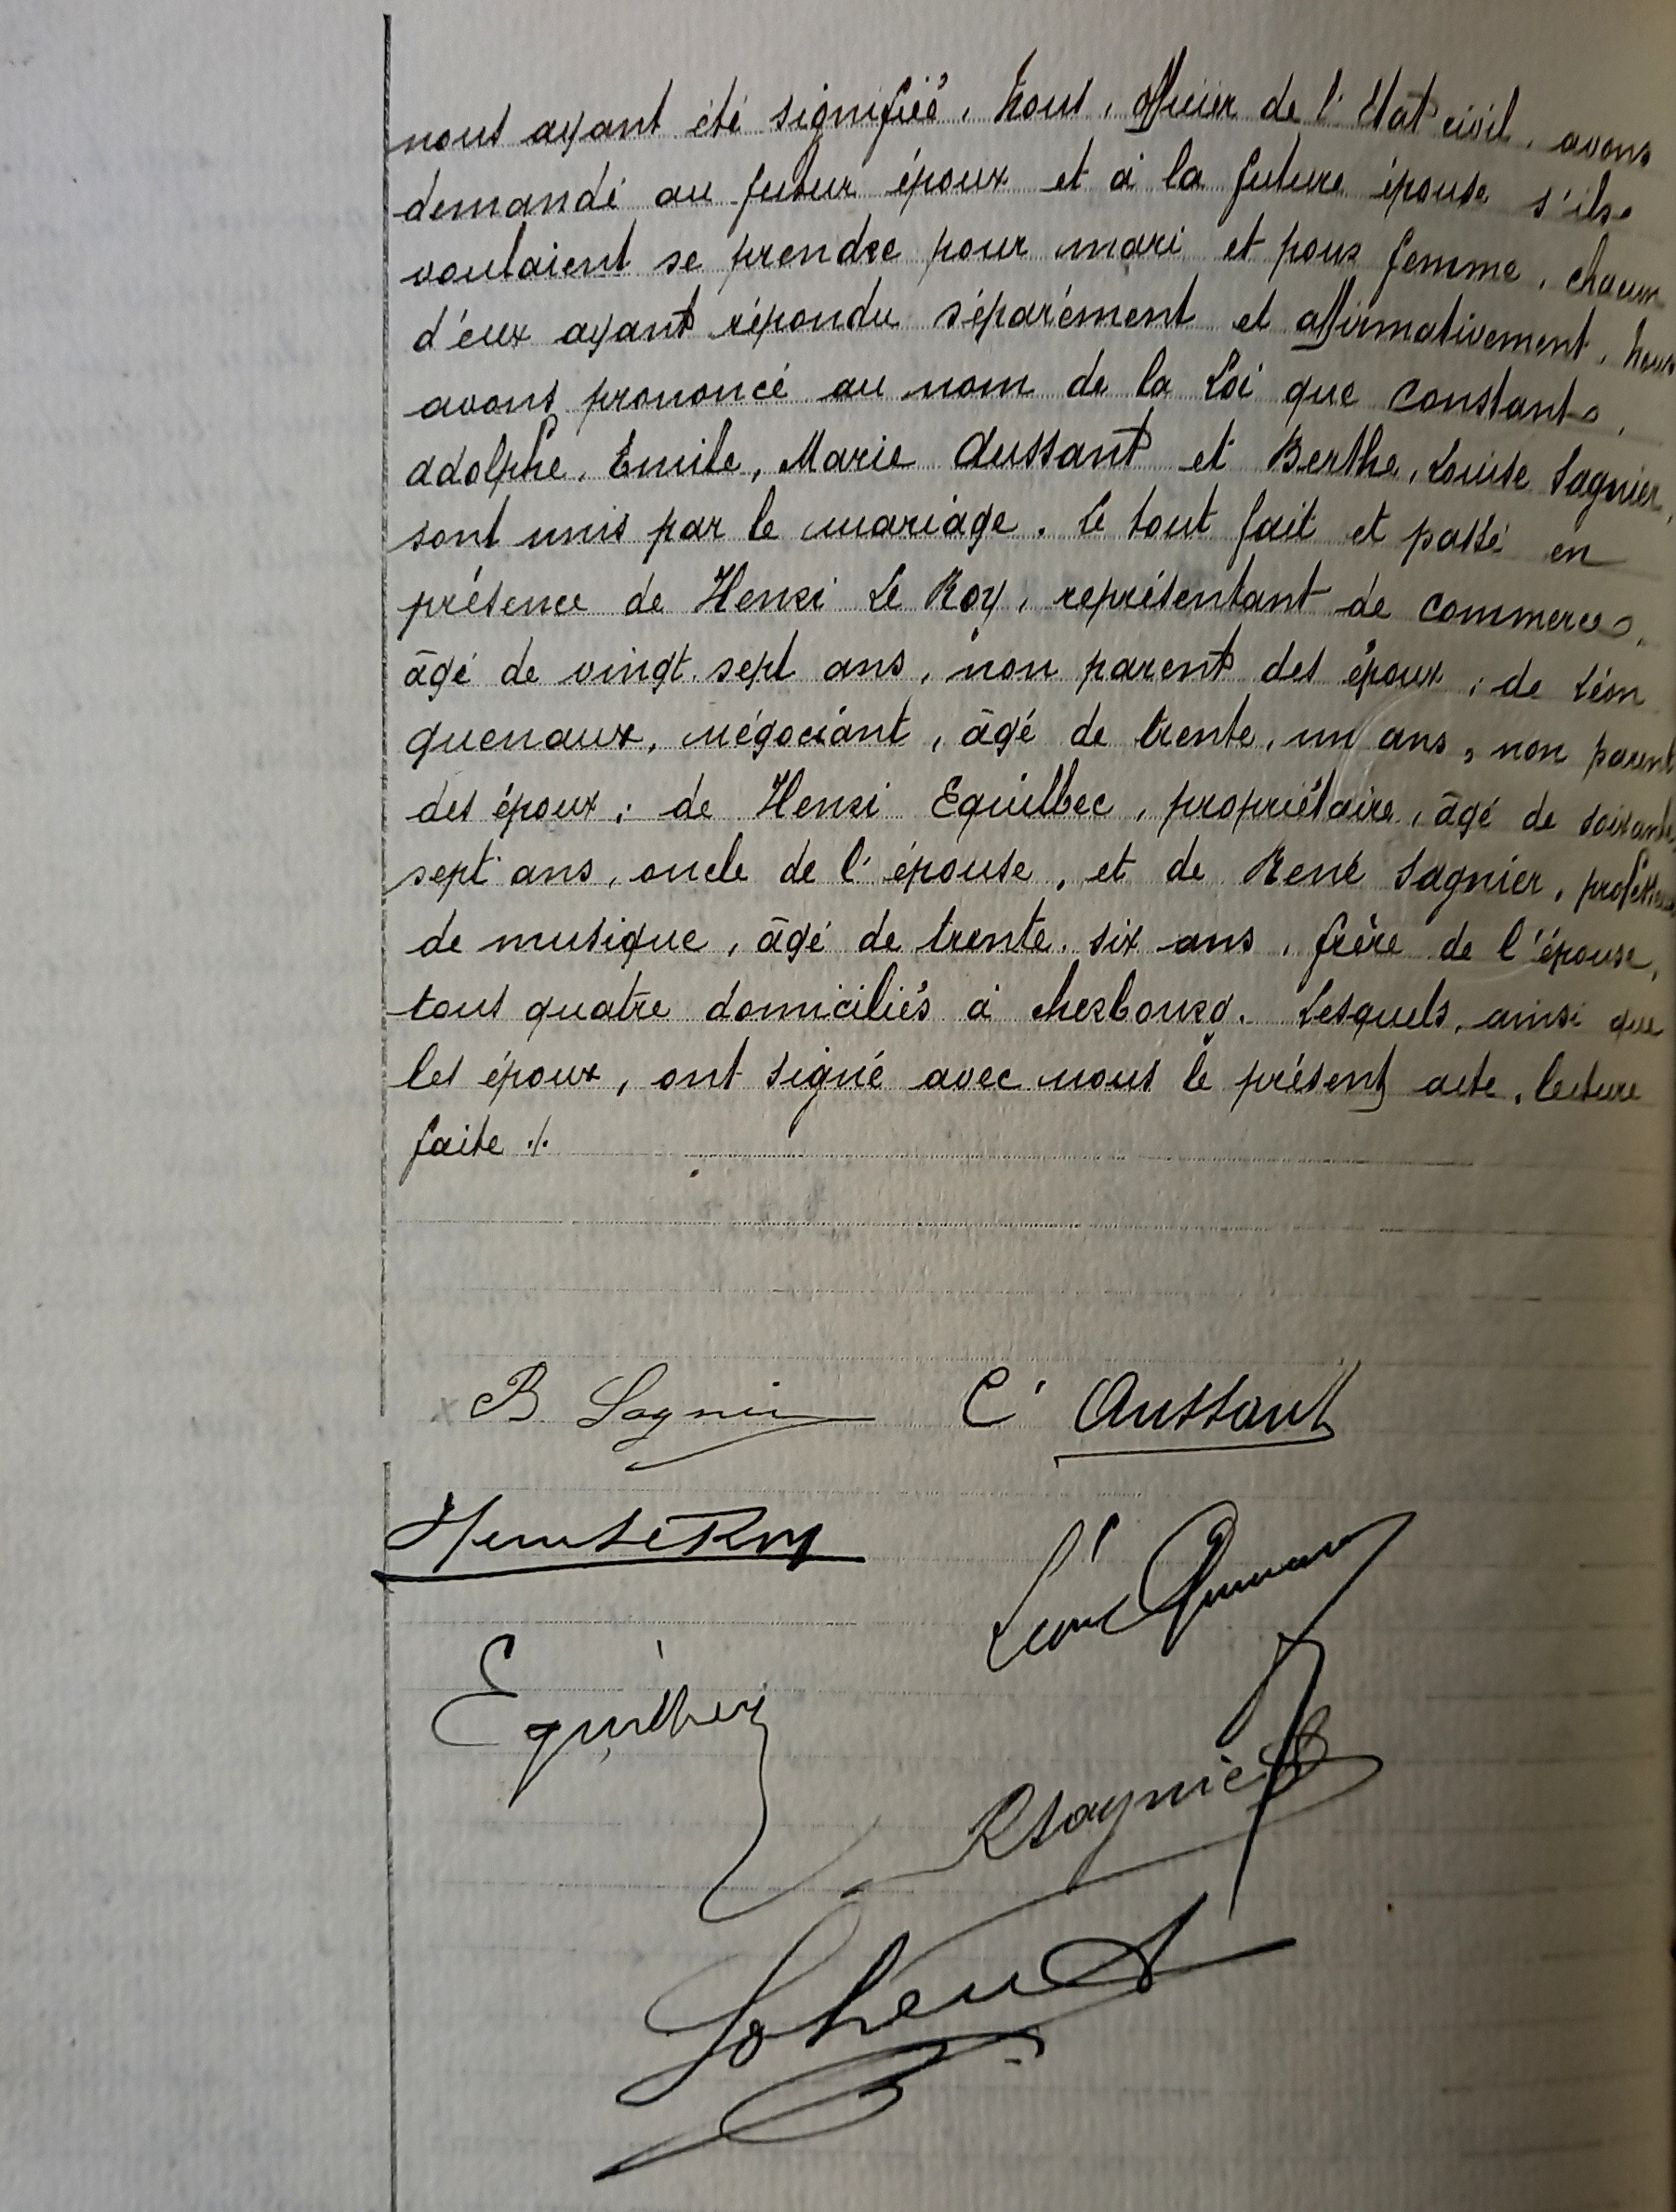 nous ayant été signifié, Nous, Officier de l'Etat civil, avons
demandé au futur époux et à la future épouse s'ils
voulaient se prendre pour mari et pour femme, chacun
d'eux ayant répondu séparément et affirmativement, nous
avons prononcé au nom de la Loi que Constant,
Adolphe, Emile, Marie Aussant et Berthe, Louise Sagnier,
sont unis par le mariage. Le tout fait et passé en
présence de Henri Le Roy, représentant de commerce,
âgé de vingt-sept ans, non parent des époux; de Léon
Quenaux, négociant, âgé de trente-un ans, non parent
des époux; de Henri Equilbec, propriétaire, âgé de soixante
sept ans, oncle de l'épouse, et de René Sagnier, professeur
de musique, âgé de trente-six ans, frère de l'épouse,
tous quatre domiciliés à Cherbourg. Lesquels, ainsi que
les époux, ont signé avec nous le présent acte, lecture
faite ./.
B. Sagnier C Aussant
Henri Le Roy
Léon Quenaux
Equilbec
R Sagnier